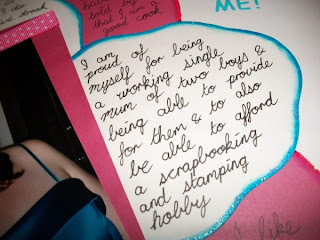 streak
hard
told by
that I am a
good cook
ME!
I am
proud of
myself for being
a working single
mum of two boys &
being able to provide
for them & to also
be able to afford
a scrapbooking
and stamping
hobby
I like